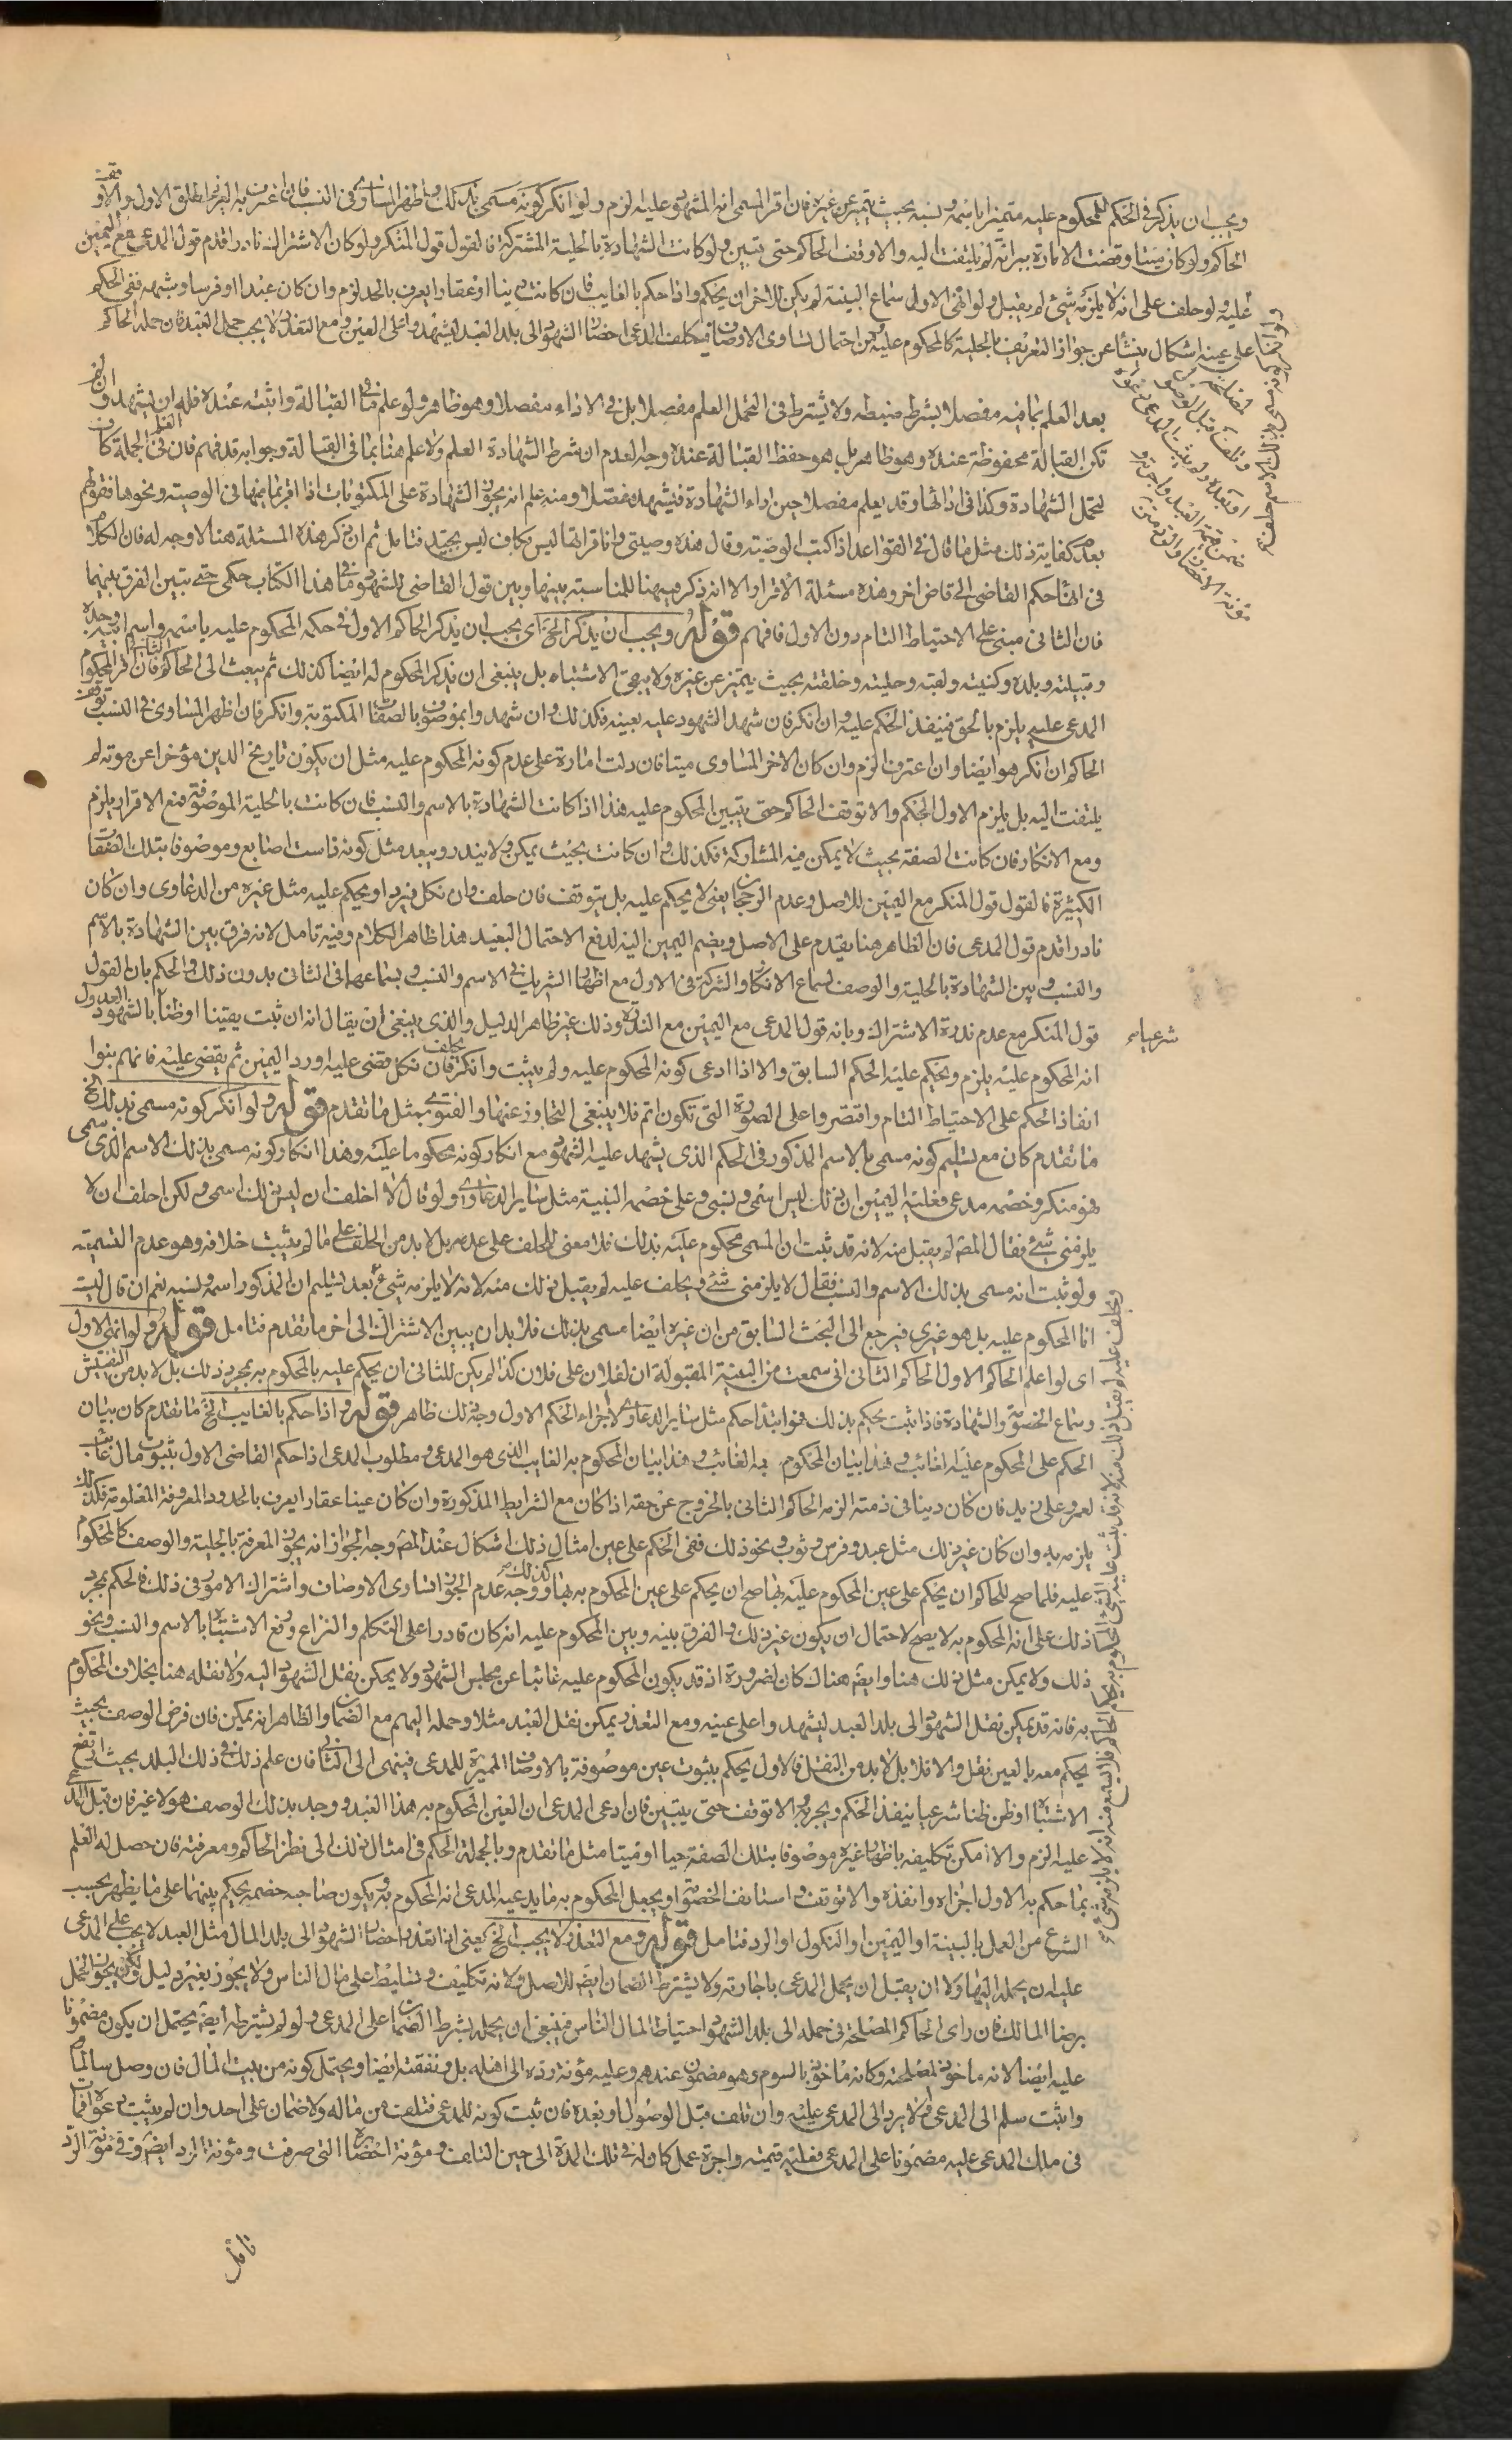 ويجب ان يذكر في الحكم المحكوم عليه متميزا باسمه ونسبه بحيث يتميز عن غيره فان اقر المسمى انه المشهود عليه لزم ولو انكر كونه مسمى بذلك واظهر المساوي في النسب فان اعترف به الغريم اطلق الاول والا وقف
الحاكم ولو كان ميتا وقضت الامارة ببرائته لم يلتفت اليه والا وقف الحاكم حتى تبين ولو كانت الشهادة بالحلية المشتركة فالقول قول المنكر ولو كان الاشتراك نادرا قدم قول المدعي مع اليمين
عليه ولو حلف على انه لا يلزمه شئ لم يقبل ولو انهى الاول سماع البينة لم يكن للاخر ان يحكم واذا حكم بالغايب فان كانت دينا او عقارا يعرف بالحد لزم وان كان عبدا او فرسا وشبهه ففي الحكم
على عينه اشكال ينشأ عن جواز التعريف بالحلية كالمحكوم عليه ومن احتمال تساوي الاوصاف فيكلف المدعي احضار الشهود الى بلد العبد ليشهدوا على العين ومع التعذر لا يجب حمل العبد فان حمله الحاكم
بعد العلم بما فيه مفصلا بشرط ضبطه ولا يشترط في التحمل العلم مفصلا بل في الاداء مفصلا وهو ظاهر ولو علم ما في القبالة واثبته عنده فله ان يشهد وان لم
تكن القبالة محفوظة عنده وهو ظاهر بل هو حفظ القبالة عنده وجه لعدم ان شرط الشهادة العلم ولا علم هنا بما في القبالة وجوابه قد فهم فان العلم في الجملة كاف
لتحمل الشهادة وكذا في ادائها وقد يعلم مفصلا حين اداء الشهادة فيشهد مفصلا ومنه علم انه يجوز الشهادة على المكتوبات اذا اقر بما فيها في الوصية ونحوها فقولهم
بعدم كفاية ذلك مثل ما قال في القواعد اذا كتب الوصية وقال هذه وصيتي وانا قرانها ليس بكاف ليس بجيد فتامل ثم ان ذكر هذه المسئلة هنا لا وجه له فان الكلام
في انهاء حكم القاضي الى قاض اخر وهذه مسئلة الاقرار الا انه ذكره ههنا للمناسبة بينها وبين قول القاضي للشهود ما في هذا الكتاب حكمي حتى تبين الفرق بينهما
فان الثاني مبني على الاحتياط التام دون الاول فافهم قوله ويجب ان يذكر الخ اي يجب ان يذكر الحاكم الاول في حكمه المحكوم عليه باسمه واسم ابيه وجده
وقبيلته وبلده وكنيته ولقبه وحليته وخلقته بحيث يتميز عن غيره ولا يبقى الاشتباه بل ينبغي ان يذكر المحكوم له ايضا كذلك ثم يبعث الى الحاكم الثاني فان اقر المحكوم
المدعى عليه يلزم بالحق فينفذ الحكم عليه وان انكر فان شهد الشهود عليه بعينه فكذلك وان شهدوا بموصوف بالصفات المكتوبة وانكر فان اظهر المساوي في النسب توقف
الحاكم ان انكر هو ايضا وان اعترف الزم وان كان الاخر المساوي ميتا فان دلت امارة على عدم كونه المحكوم عليه مثل ان يكون تاريخ الدين مؤخرا عن موته لم
يلتفت اليه بل يلزم الاول الحكم والا توقف الحاكم حتى يتبين المحكوم عليه هذا اذا كانت الشهادة بالاسم والنسب فان كانت بالحلية الموصوفة فمع الاقرار يلزم
ومع الانكار فان كانت الصفة بحيث لا يمكن فيه المشاركة فكذلك وان كانت بحيث يمكن ولا يندر ويبعد مثل كونه ذا ست اصابع وموصوفا بتلك الصفات
الكثيرة فالقول قول المنكر مع اليمين للاصل وعدم الرجحان يعني لا يحكم عليه بل يتوقف فان حلف وان نكل فيرد او يحكم عليه مثل غيره من الدعاوى وان كان
نادرا قدم قول المدعي فان الظاهر هنا يقدم على الاصل ويضم اليمين اليه لدفع الاحتمال البعيد هذا ظاهر الكلام وفيه تامل لانه فرق بين الشهادة بالاسم
والنسب وبين الشهادة بالحلية والوصف لسماع الانكار والشركة في الاول مع اظهار الشريك في الاسم والنسب وبسماعها في الثاني بدون ذلك والحكم بان القول
قول المنكر مع عدم ندرة الاشتراك وبانه قول المدعي مع اليمين مع الندرة وذلك غير ظاهر الدليل والذي ينبغي ان يقال انه ان ثبت يقينا او ظنا بالشهود العدول
شرعيا
انه المحكوم عليه يلزم ويحكم عليه الحكم السابق والا اذا ادعى كونه المحكوم عليه ولم يثبت وانكر يحلف فان نكل قضي عليه او رد اليمين ثم يقضى عليه فانهم بنوا
انفاذ الحكم على الاحتياط التام واقتصروا على الصورة التي تكون اتم فلا ينبغي التجاوز عنها والفتوى بمثل ما تقدم قوله ولو انكر كونه مسمى بذلك الخ
ما تقدم كان مع تسليم كونه مسمى بالاسم المذكور في الحكم الذي يشهد عليه الشهود مع انكار كونه محكوما عليه وهذا انكار كونه مسمى بذلك الاسم الذي سمى
فهو منكر وخصمه مدعي فعليه اليمين ان ذلك ليس اسمي ونسبي وعلى خصمه البينة مثل ساير الدعاوى ولو قال لا احلف ان ليس ذلك اسمي ولكن احلف ان لا
يلزمني شئ فقال المصـ لم يقبل منه لانه قد ثبت ان المسمى محكوم عليه بذلك فلا معنى للحلف على عدمه بل لا بد من الحلف على ما لم يثبت خلافه وهو عدم التسمية
ولو ثبت انه مسمى بذلك الاسم والنسب فقال لا يلزمني شئ ويحلف عليه لم يقبل ذلك منه لانه لا يلزمه شئ بعد تسليم ان المذكور اسمه ونسبه نعم ان قال ليت
انا المحكوم عليه بل هو غيري فيرجع الى البحث السابق من ان غيره ايضا مسمى بذلك فلا بد ان يبين الاشتراك الى اخر ما تقدم فتامل قوله ولو انهى الاول
اي لو اعلم الحاكم الاول الحاكم الثاني اني سمعت من البينة المقبولة ان لفلان على فلان كذا لم يكن للثاني ان يحكم عليه بالمحكوم به بمجرد ذلك بل لا بد من التفتيش
وسماع الخصومة والشهادة فاذا ثبت يحكم بذلك فهو ابتدا حكم مثل ساير الدعاوى لا اجراء الحكم الاول وجه ذلك ظاهر قوله واذا حكم بالغايب الخ ما تقدم كان بيان
الحكم على المحكوم عليه الغائب وهذا بيان المحكوم به الغائب وهذا بيان المحكوم به الغايب الذي هو المدعى ومطلوب المدعي اذا حكم القاضي الاول بثبوت مال غائب
لعمرو على زيد فان كان دينا في ذمته الزمه الحاكم الثاني بالخروج عن حقه اذا كان مع الشرايط المذكورة وان كان عينا عقارا يعرف بالحدود المعروفة المعلومة فكذلك
يلزمه به وان كان غير ذلك مثل عبد وفرس وثوب ونحو ذلك ففي الحكم على عين امثال ذلك اشكال عند المصـ وجه الجواز انه يجوز المعرفة بالحلية والوصف كالمحكوم
عليه فلما صح للحاكم ان يحكم على عين المحكوم عليه بها صح ان يحكم على عين المحكوم به بها كذلك ووجه عدم الجواز تساوي الاوصاف واشتراك الامور في ذلك فالحكم بمجرد
ذلك على انه المحكوم به لا يصح لاحتمال ان يكون غير ذلك والفرق بينه وبين المحكوم عليه انه كان قادرا على التكلم والنزاع ورفع الاشتباه بالاسم والنسب ونحو
ذلك ولا يمكن مثل ذلك هنا وايضا هناك كان لضرورة اذ قد يكون المحكوم عليه غائبا عن مجلس الشهود ولا يمكن نقل الشهود اليه ولا نقله هنا بخلاف المحكوم
به فانه قد يمكن نقل الشهود الى بلد العبد ليشهدوا على عينه ومع التعذر يمكن نقل العبد مثلا وحمله اليهم مع الضمان والظاهر انه يمكن فان فرض الوصف بحيث
يحكم معه بالعين نقل والا فلا بل لا بد من النقل فالاول يحكم بثبوت عين موصوفة بالاوصاف المميزة للمدعي فينهى الى الثاني فان علم ذلك في ذلك البلد بحيث ارتفع
الاشتباه او ظن ظنا شرعيا ينفذ الحكم ويجريه والا توقف حتى يتبين فان ادعى المدعي ان العين المحكوم به هذا العبد ووجد بذلك الوصف هو لا غير فان قبل المدعى
عليه الزم والا امكن تكليفه باظهار غيره موصوفا بتلك الصفة حيا او ميتا مثل ما تقدم وبالجملة الحكم في امثال ذلك الى نظر الحاكم ومعرفته فان حصل له العلم
بما حكم به الاول اجراه وانفذه والا توقف واستانف الخصومة او يجعل المحكوم به ما يدعيه المدعي انه المحكوم به ويكون صاحبه خصمه يحكم بينهما على ما يظهر بحسب
الشرع من العمل بالبينة او اليمين او النكول او الرد فتامل قوله ومع التعذر لا يجب الخ يعني اذا تعذر احضار الشهود الى بلد المال مثل العبد لا يجب على المدعى
عليه ان يحمله اليها ولا ان يقبل ان يحمل المدعي باجارته ولا يشترط الضمان ايضا للاصل ولانه تكليف وتسليط على مال الناس ولا يجوز بغير دليل ولكن يجوز الحمل
برضا المالك فان راى الحاكم المصلحة في حمله الى بلد الشهود احتياطا لمال الناس فينبغي ان يحمله بشرط الضمان على المدعي ولو لم يشترطه ايضا يحتمل ان يكون مضمونا
عليه ايضا لانه ماخوذ لمصلحته وكانه ماخوذ بالسوم وهو مضمون عندهم وعليه مؤنة رده الى اهله بل ونفقته ايضا ويحتمل كونه من بيت المال فان وصل سالما
واثبت سلم الى المدعي والا يرد الى المدعى عليه وان تلف قبل الوصول او بعده فان ثبت كونه للمدعي فتلفه من ماله ولا ضمان على احد وان لم يثبت دعواه فما
في ملك المدعى عليه مضمونا على المدعي فعليه قيمته واجرة عمل كان له في تلك المدة الى حين التلف ومؤنة احضاره التي صرفت ومؤنة الرد ايضا وفي مؤنة الرد
تامل
ولو انكر كونه مسمى بذلك الاسم حلف
لمصلحته
وتلف قبل الوصول
او بعده ولم يثبت المدعي دعواه
ضمن قيمة العبد واجرته و
مؤنة الاحضار والرد